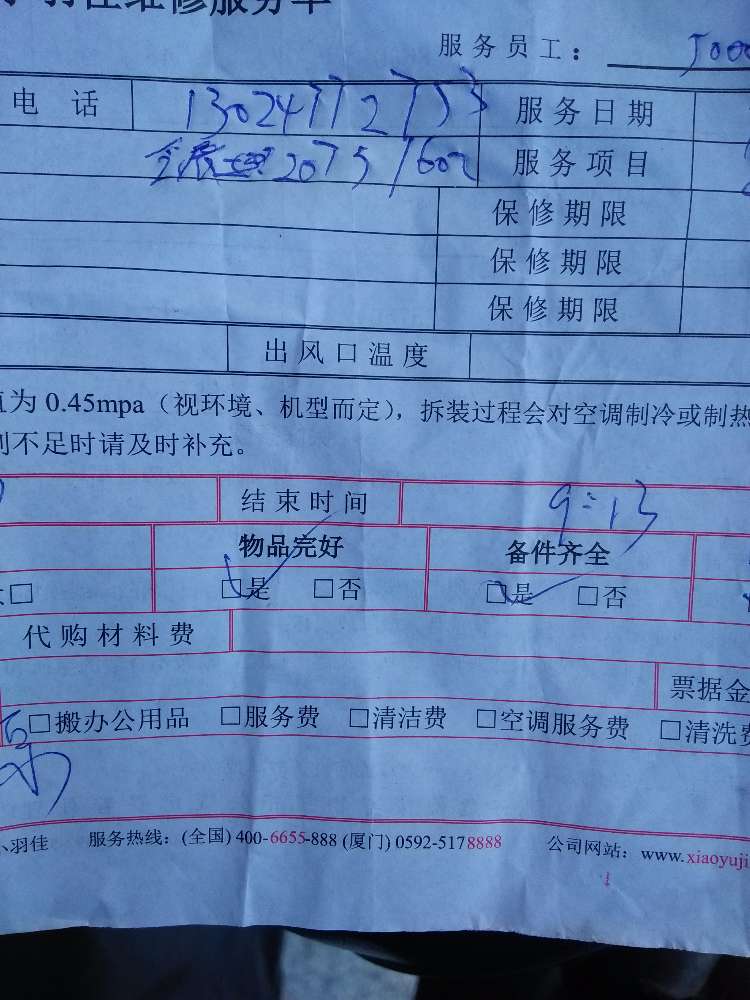 羽佳维修服务单
服务员工：
电话 13024772753 服务日期
2075 1602 服务项目
保修期限
保修期限
保修期限
出风口温度
值为 0.45mpa（视环境、机型而定），拆装过程会对空调制冷或制热
不足时请及时补充。
结束时间 9:13
物品完好 备件齐全
□ □是 □否 □是 □否
代购材料费
票据金
□搬办公用品 □服务费 □清洁费 □空调服务费 □清洗费
小羽佳 服务热线：(全国) 400-6655-888 (厦门) 0592-5178888 公司网站：www.xiaoyuji